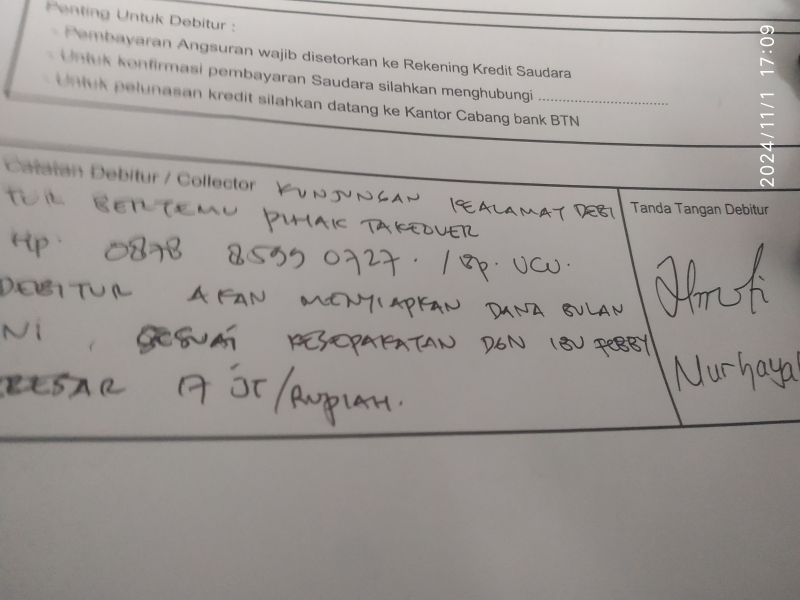 Penting Untuk Debitur :
- Pembayaran Angsuran wajib disetorkan ke Rekening Kredit Saudara
- Untuk konfirmasi pembayaran Saudara silahkan menghubungi ................................
- Untuk pelunasan kredit silahkan datang ke Kantor Cabang bank BTN
2024/11/1 17:09
Catatan Debitur / Collector KUNJUNGAN KEALAMAT DEBI
TUR BERTEMU PIHAK TAKEOVER
Hp. 0878 8599 0727. / Bp. UCU.
DEBITUR AKAN MENYIAPKAN DANA BULAN
NI, SESUAI KESEPAKATAN DGN IBU FEBBY
BESAR 17 JT/RUPIAH.
Tanda Tangan Debitur
Nurhayat